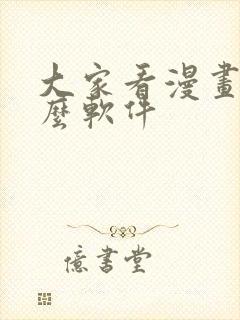 大家看漫畫
麼軟件
億書堂